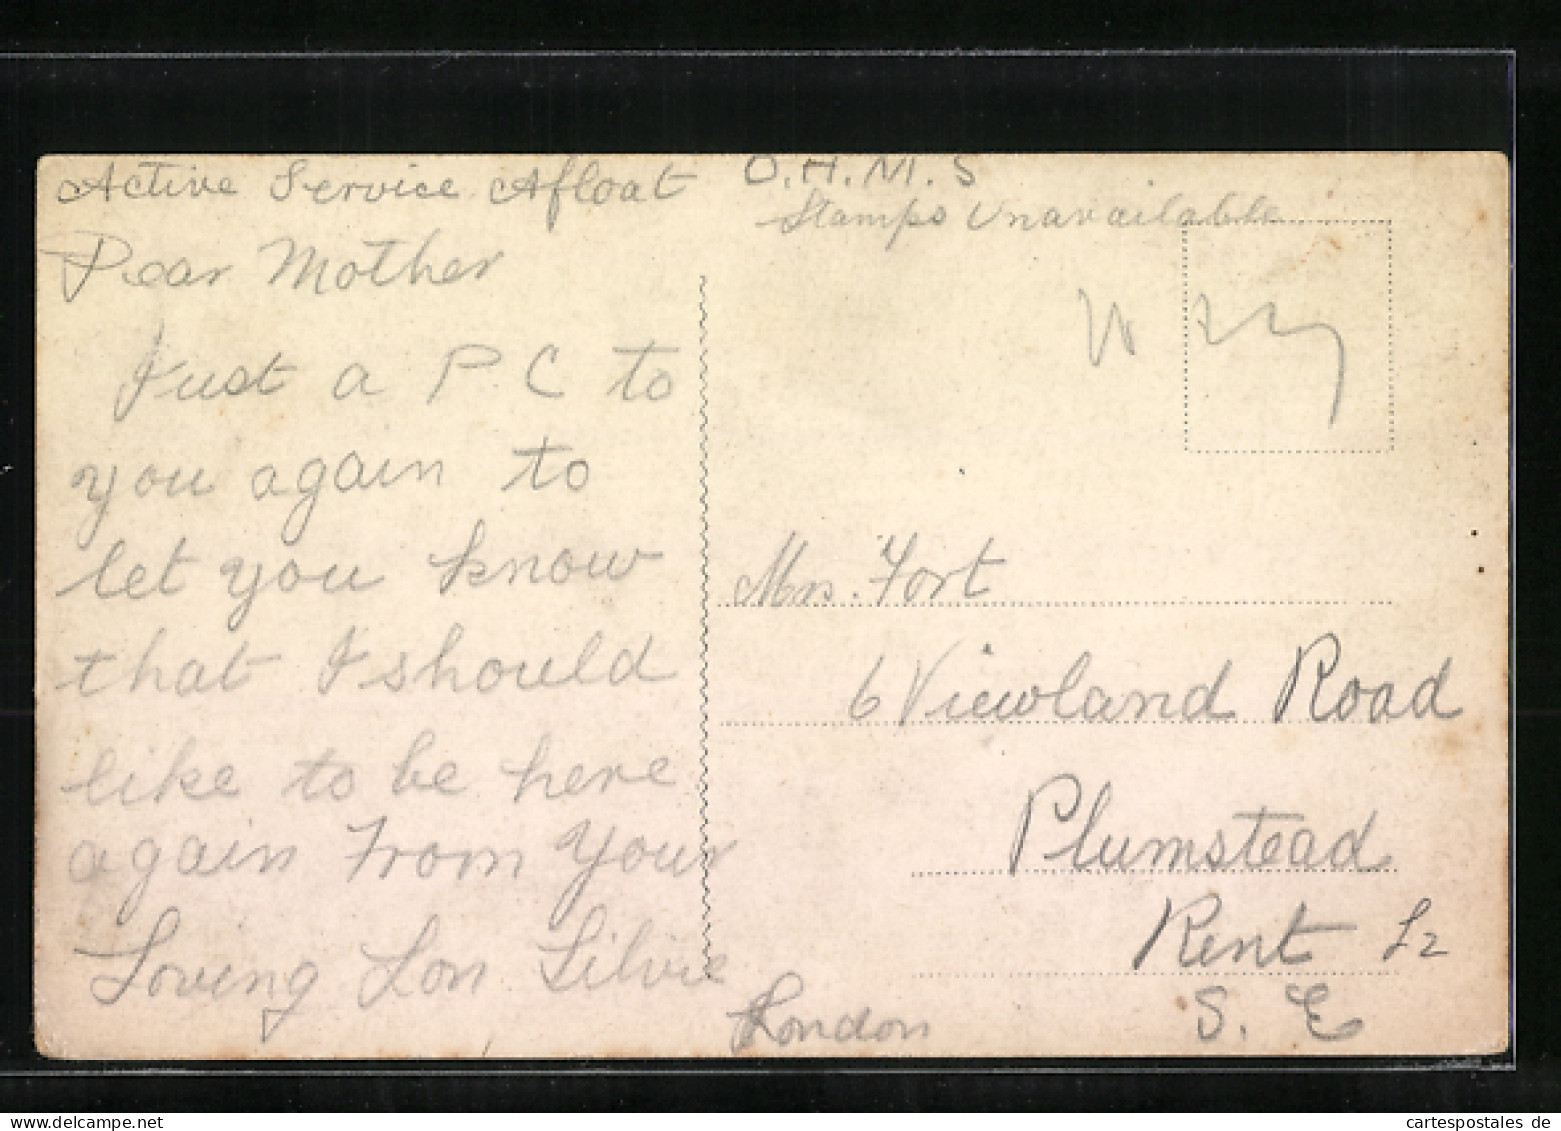 Active Service Afloat
Dear Mother
Just a P.C to
you again to
let you know
that I should
like to be here
again From your
Loving Son
O.H.M.S
Stamps Unavailable
Mrs. Fort
6 Viewland Road
Plumstead
Kent
S. E
London
cartespostales de